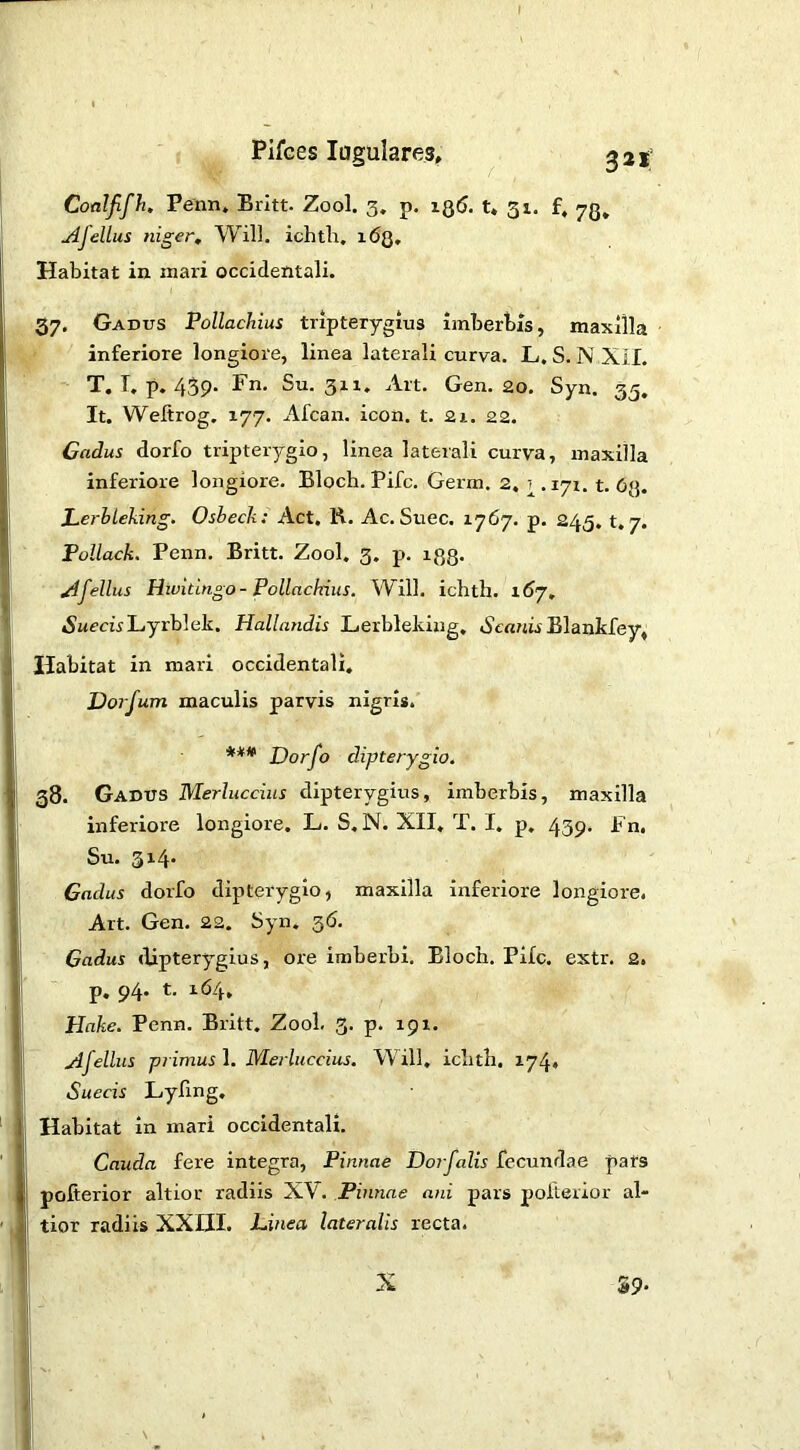 Pifces Iugulares, 321
Coalfifh. Penn. Britt. Zool. 3. p. 186. t. 31. f. 78.
Afellus niger. Will. ichth. 168.
Habitat in mari occidentali.
37. GADUS Pollachius tripterygius imberbis, maxilla
inferiore longiore, linea laterali curva. L. S. N XII.
T. I. p. 439. Fn. Su. 311. Art. Gen. 20. Syn. 35.
It. Weftrog. 177. Afcan. icon. t. 21. 22.
Gadus dorfo tripterygio, linea laterali curva, maxilla
inferiore longiore. Bloch. Pifc. Germ. 2. .171. t. 68.
Lerbleking. Osbeck: Act. R. Ac. Suec. 1767. p. 245. t. 7.
Pollack. Penn. Britt. Zool. 3. p. 188.
Afellus Hwitingo-Pollachius. Will. ichth. 167.
Suecis Lyrblek. Hallandis Lerbleking. Scanis Blankfey,
Habitat in mari occidentali.
Dorfum maculis parvis nigris.
*** Dorfo dipterygio.
38. GADUS Merluccius dipterygius, imberbis, maxilla
inferiore longiore. L. S. N. XII. T. I. p. 439. Fn.
Su. 314.
Gadus dorfo dipterygio, maxilla inferiore longiore.
Art. Gen. 22. Syn. 36.
Gadus dipterygius, ore imberbi. Bloch. Pifc. extr. 2.
p. 94. t. 164.
Hake. Penn. Britt. Zool. 3. p. 191.
Afellus primus l. Merluccius. Will. ichth. 174.
Suecis Lyfing.
Habitat in mari occidentali.
Cauda fere integra, Pinnae Dorfalis fecundae pars
pofterior altior radiis XV. Pinnae ani pars pofterior al-
tior radiis XXIII. Linea lateralis recta.
X 39.